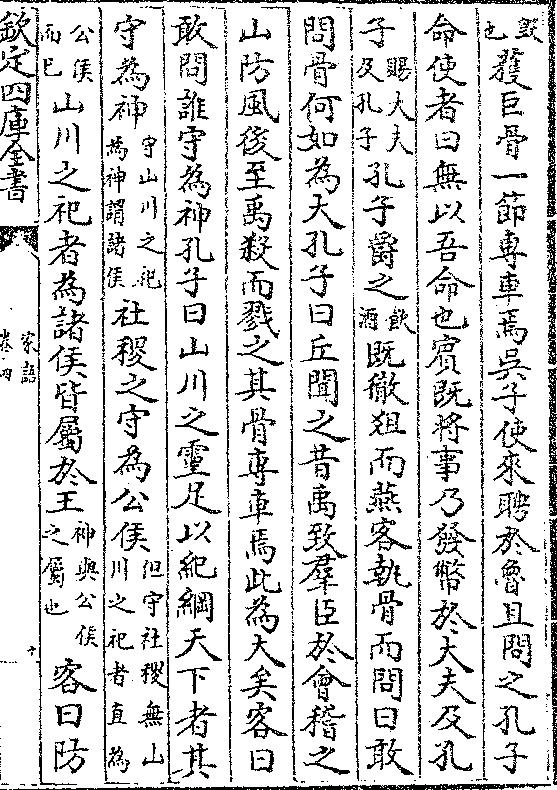 毀也獲巨骨一節專車焉吳子使來聘於魯且問之孔子
命使者曰無以吾命也賓既將事乃發幣於大夫及孔
子賜大夫及孔子孔子爵之飲酒既徹俎而燕客執骨而問曰敢
問骨何如為大孔子曰丘聞之昔禹致羣臣於會稽之
山防風後至禹殺而戮之其骨專車焉此為大矣客曰
敢問誰守為神孔子曰山川之靈足以紀綱天下者其
守為神守山川之祀為神謂諸侯社稷之守為公侯但守社稷無山川之祀者直為
公侯而已山川之祀者為諸侯皆屬於王神與公侯之屬也客曰防
欽定四庫全書
家語
卷四
十